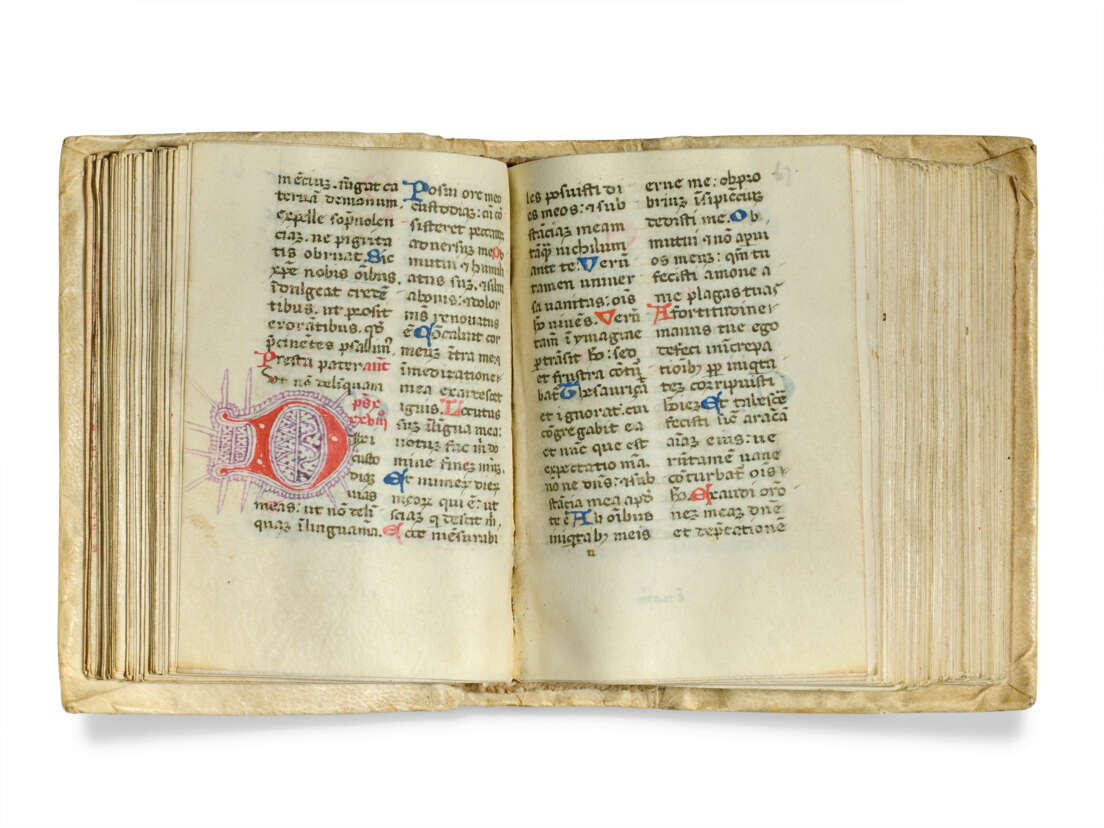 mēciuꝫ. fugat ca
teruā demonum,
expelle sopnolen
ciaꝫ. ne pigrita
tis obruat. Sic
xp̄e nobis oīb⁹.
īdulgeat credē
tibus. ut prosit
exorātibus. qd̓
p̄cinētes psallim⁹.
Presta pater ant̄
Ut nō delīquam
ps̄ꝰ
xxviii
ixi
custo
diaꝫ
uias
meas: ut nō delī
quaꝫ ī lingua mā.
Posui ore meo
custodiaꝫ: cū cō
sisteret peccator
aduersuꝫ me. Ob
mutui ⁊ humili
atus suꝫ, ⁊ silui
a bonis: ⁊ dolor
m̄s renouatus
ē. Cōcaluit cor
meuꝫ ītra me ⁊
ī meditatione
mea exardescet
ignis. Locutus
suꝫ ī lingua mea:
notuꝫ fac m̄ do
mine fineꝫ meuꝫ.
Et numeꝝ dieꝝ
meoꝝ qui ē: ut
sciaꝫ qͥd desit m̄.
Ecce mēsurabi
les posuisti di
es meos: ⁊ sub
stāciaꝫ meam
tāqͣꝫ nichilum
ante te. Verū
tamen univer
sa uanitas: oīs
hō uiuēs. Verū
tam̄ ī ymagine
ꝑtrāsit hō: sed
et frustra cōtur
bat̄. Thesauriçat
et ignorat. cui
cōgregabit ea
et nūc que est
expectatio mā.
nōne dn̄s: ⁊ sub
stācia mea apd̓
te ē. Ab oībus
iniqͥtatibꝫ meis
erue me: obpro
briuꝫ īsipiētiuꝫ
dedisti me. Ob
mutui ⁊ nō aꝑui
os meuꝫ: qm̄ tu
fecisti amoue a
me plagas tuas.
A fortitudine
manus tue ego
defeci īncrepa
tioībꝫ ꝓp̄ iniqͥta
teꝫ corripuisti
hoīeꝫ. Et tabescē
fecisti sic̄ aranā
aīaꝫ eius: ue
rūtamē uane
cōturbat̄ oīs
hō. Exaudi orō
neꝫ meaꝫ dn̄e
et dep̄cationē